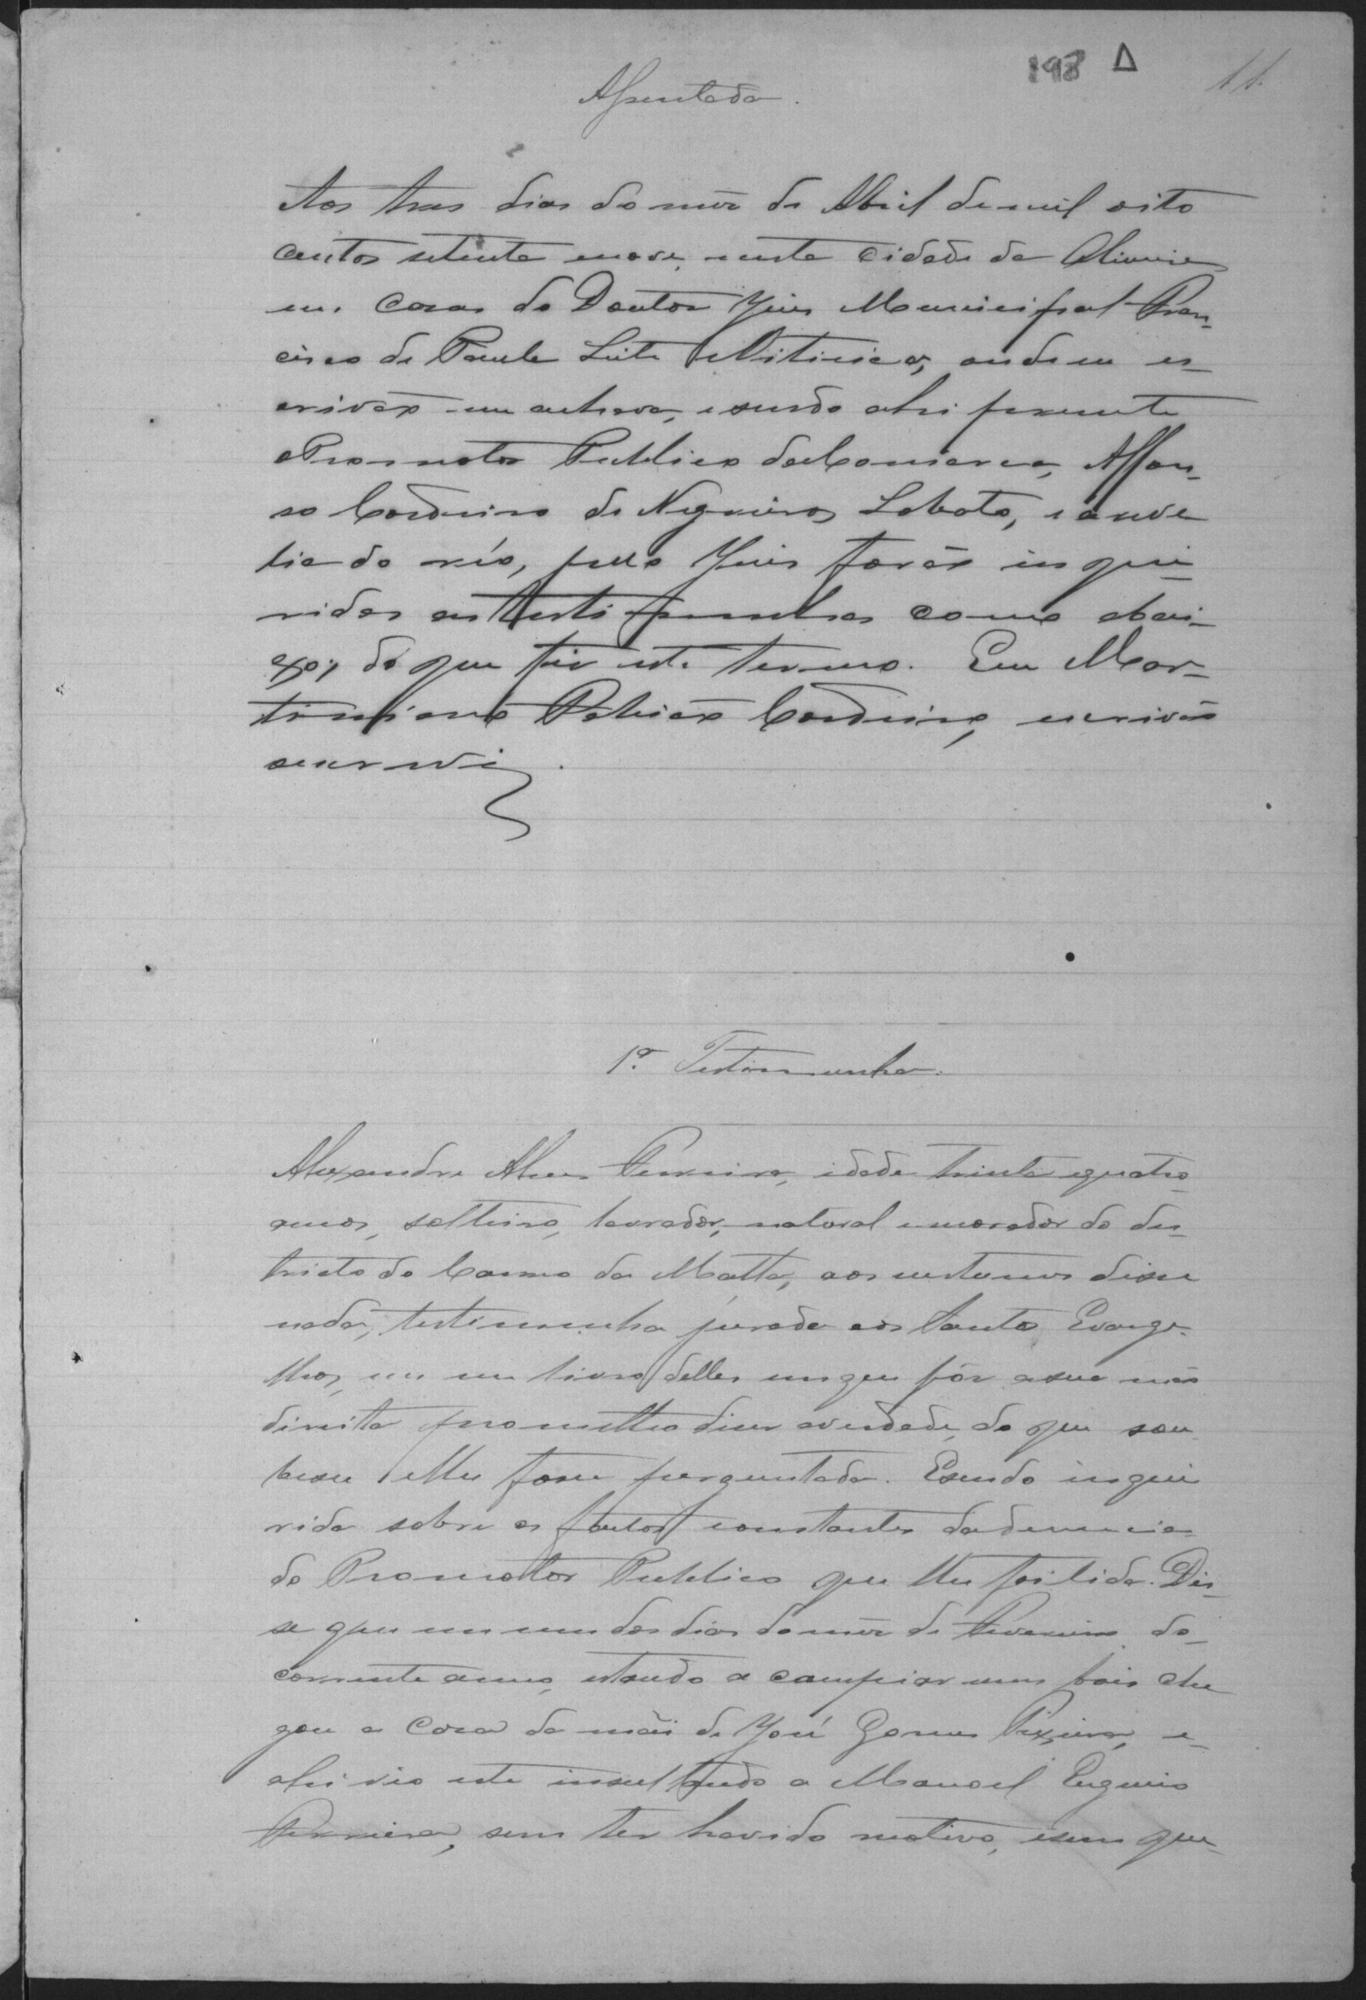 198 Δ
11
Assentada.
Aos tres dias do mez de Abril de mil oito
centos setenta enove, nesta cidade da Oliveira
em casas do Doutor Juiz Municipal Fran-
cisco de Paula Leite , onde eu es-
crivão me achava, esendo ahi presente
oPromotor Publico daComarca, Affon-
so Cordeiro de Negreiros Lobato, e areve
lia do réo, pelo Juiz forão inqui-
ridas as testimunhas como abai-
xo; do que fiz este termo. Eu Mar-
tiniano Cordeiro, escrivão
escrevi.
1ª. Testimunha.
Alexandre Alves Ferreira, idade trinta equatro
annos, solteiro, lavrador, natural emorador do dis-
tricto do Carmo da Matta, aos custumes disse
nada; testimunha jurada aos Santos Evange-
lhos, em um livro delles emque pôr asua mão
direita prometteo dizer averdade, do que sou-
besse elhe fosse perguntado. Esendo inqui
rida sobre os factos constantes dadenuncia
do Promotor Publico que lhe foi lida. Dis-
se que em um dos dias domez de Fevereiro do
corrente anno, estando a campiar uns bois che
gou a casa da mãi de José Gomes Pixeira, e
ahi vio este insultando a Manoel Eugenio
Ferreira, sem ter havido motivo, esem que